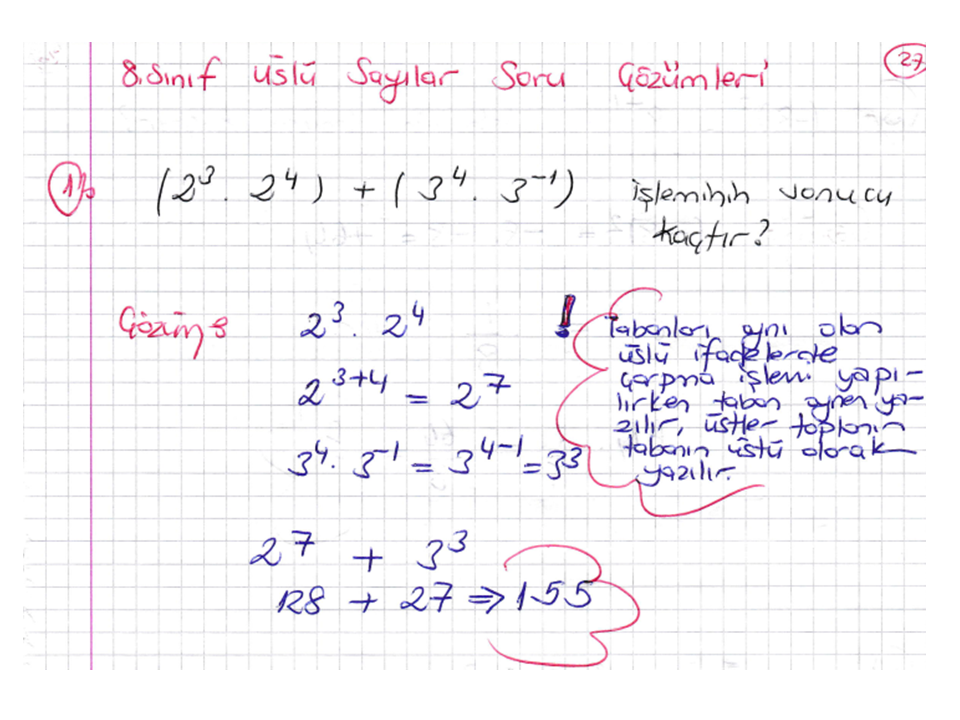 8.Sınıf Üslü Sayılar Soru Çözümleri
27
1) (2³ . 2⁴) + (3⁴ . 3⁻¹) işleminin sonucu
kaçtır?
Çözüm: 2³ . 2⁴
2³⁺⁴ = 2⁷
3⁴ . 3⁻¹ = 3⁴⁻¹ = 3³
! Tabanları aynı olan
üslü ifadelerde
çarpma işlemi yapı-
lırken taban aynen ya-
zılır, üstler toplanın
tabanın üstü olarak
yazılır.
2⁷ + 3³
128 + 27 ⇒ 155